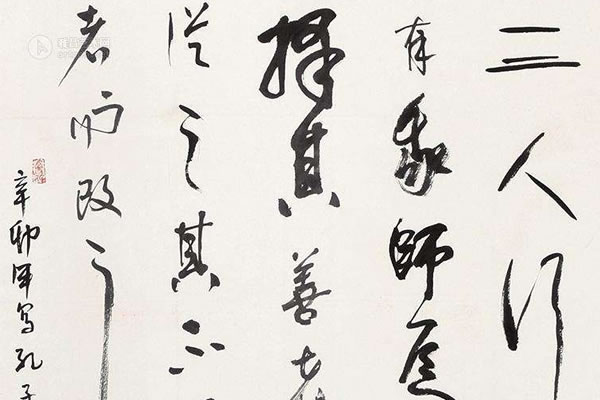 三人行
有我師焉
擇其善者
從之其不
者而改之
辛卯年寫孔子